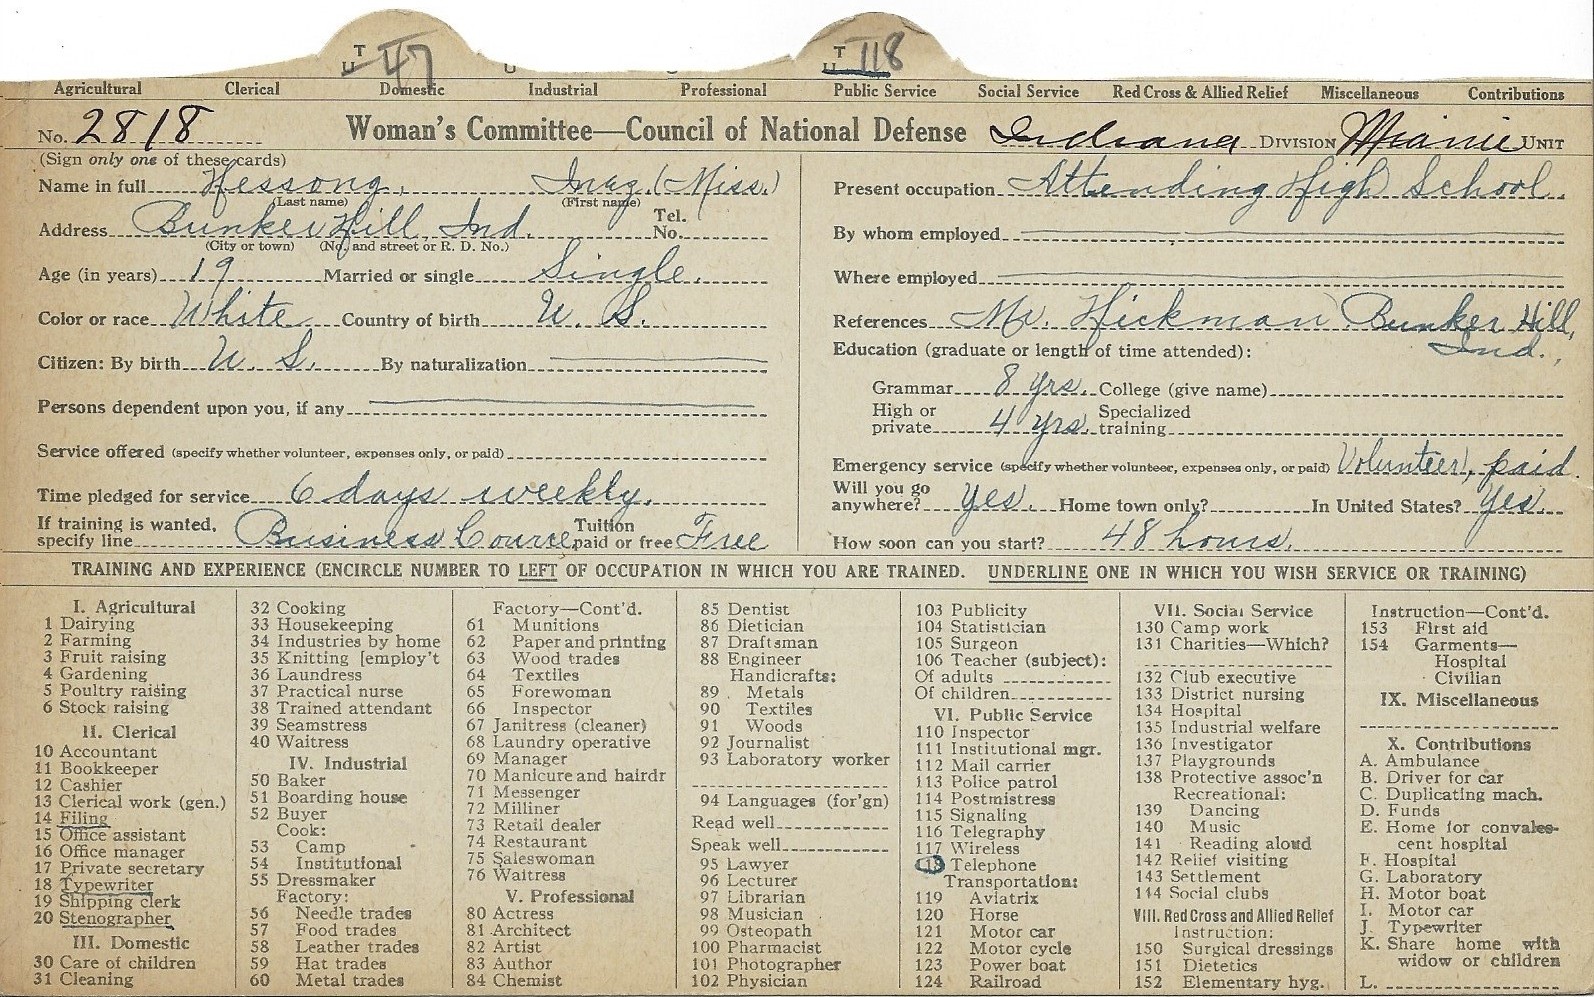 T
U 47
T
U 118
Agricultural Clerical Domestic Industrial Professional Public Service Social Service Red Cross & Allied Relief Miscellaneous Contributions
No. 2818 Woman's Committee—Council of National Defense Indiana DIVISION Miami UNIT
(Sign only one of these cards)
Name in full Hessong, Inez. (Miss.)
(Last name) (First name)
Address Bunker Hill, Ind. Tel. No.
(City or town) (No. and street or R. D. No.)
Age (in years) 19 Married or single Single.
Color or race White Country of birth U. S.
Citizen: By birth U. S. By naturalization
Persons dependent upon you, if any
Service offered (specify whether volunteer, expenses only, or paid)
Time pledged for service 6 days weekly.
If training is wanted, specify line Business Cource Tuition paid or free Free
Present occupation Attending High School.
By whom employed
Where employed
References Mr. Hickman Bunker Hill,
Ind.,
Education (graduate or length of time attended):
Grammar 8 yrs. College (give name)
High or private 4 yrs. Specialized training
Emergency service (specify whether volunteer, expenses only, or paid) Volunteer, paid
Will you go anywhere? Yes. Home town only? In United States? Yes.
How soon can you start? 48 hours.
TRAINING AND EXPERIENCE (ENCIRCLE NUMBER TO LEFT OF OCCUPATION IN WHICH YOU ARE TRAINED. UNDERLINE ONE IN WHICH YOU WISH SERVICE OR TRAINING)
I. Agricultural
1 Dairying
2 Farming
3 Fruit raising
4 Gardening
5 Poultry raising
6 Stock raising
II. Clerical
10 Accountant
11 Bookkeeper
12 Cashier
13 Clerical work (gen.)
14 Filing
15 Office assistant
16 Office manager
17 Private secretary
18 Typewriter
19 Shipping clerk
20 Stenographer
III. Domestic
30 Care of children
31 Cleaning
32 Cooking
33 Housekeeping
34 Industries by home
35 Knitting [employ't
36 Laundress
37 Practical nurse
38 Trained attendant
39 Seamstress
40 Waitress
IV. Industrial
50 Baker
51 Boarding house
52 Buyer
Cook:
53 Camp
54 Institutional
55 Dressmaker
Factory:
56 Needle trades
57 Food trades
58 Leather trades
59 Hat trades
60 Metal trades
Factory—Cont'd.
61 Munitions
62 Paper and printing
63 Wood trades
64 Textiles
65 Forewoman
66 Inspector
67 Janitress (cleaner)
68 Laundry operative
69 Manager
70 Manicure and hairdr
71 Messenger
72 Milliner
73 Retail dealer
74 Restaurant
75 Saleswoman
76 Waitress
V. Professional
80 Actress
81 Architect
82 Artist
83 Author
84 Chemist
85 Dentist
86 Dietician
87 Draftsman
88 Engineer
Handicrafts:
89 Metals
90 Textiles
91 Woods
92 Journalist
93 Laboratory worker
94 Languages (for'gn)
Read well
Speak well
95 Lawyer
96 Lecturer
97 Librarian
98 Musician
99 Osteopath
100 Pharmacist
101 Photographer
102 Physician
103 Publicity
104 Statistician
105 Surgeon
106 Teacher (subject):
Of adults
Of children
VI. Public Service
110 Inspector
111 Institutional mgr.
112 Mail carrier
113 Police patrol
114 Postmistress
115 Signaling
116 Telegraphy
117 Wireless
118 Telephone
Transportation:
119 Aviatrix
120 Horse
121 Motor car
122 Motor cycle
123 Power boat
124 Railroad
VII. Social Service
130 Camp work
131 Charities—Which?
132 Club executive
133 District nursing
134 Hospital
135 Industrial welfare
136 Investigator
137 Playgrounds
138 Protective assoc'n
Recreational:
139 Dancing
140 Music
141 Reading aloud
142 Relief visiting
143 Settlement
144 Social clubs
VIII. Red Cross and Allied Relief
Instruction:
150 Surgical dressings
151 Dietetics
152 Elementary hyg.
Instruction—Cont'd.
153 First aid
154 Garments—
Hospital
Civilian
IX. Miscellaneous
X. Contributions
A. Ambulance
B. Driver for car
C. Duplicating mach.
D. Funds
E. Home for convales-
cent hospital
F. Hospital
G. Laboratory
H. Motor boat
I. Motor car
J. Typewriter
K. Share home with
widow or children
L.